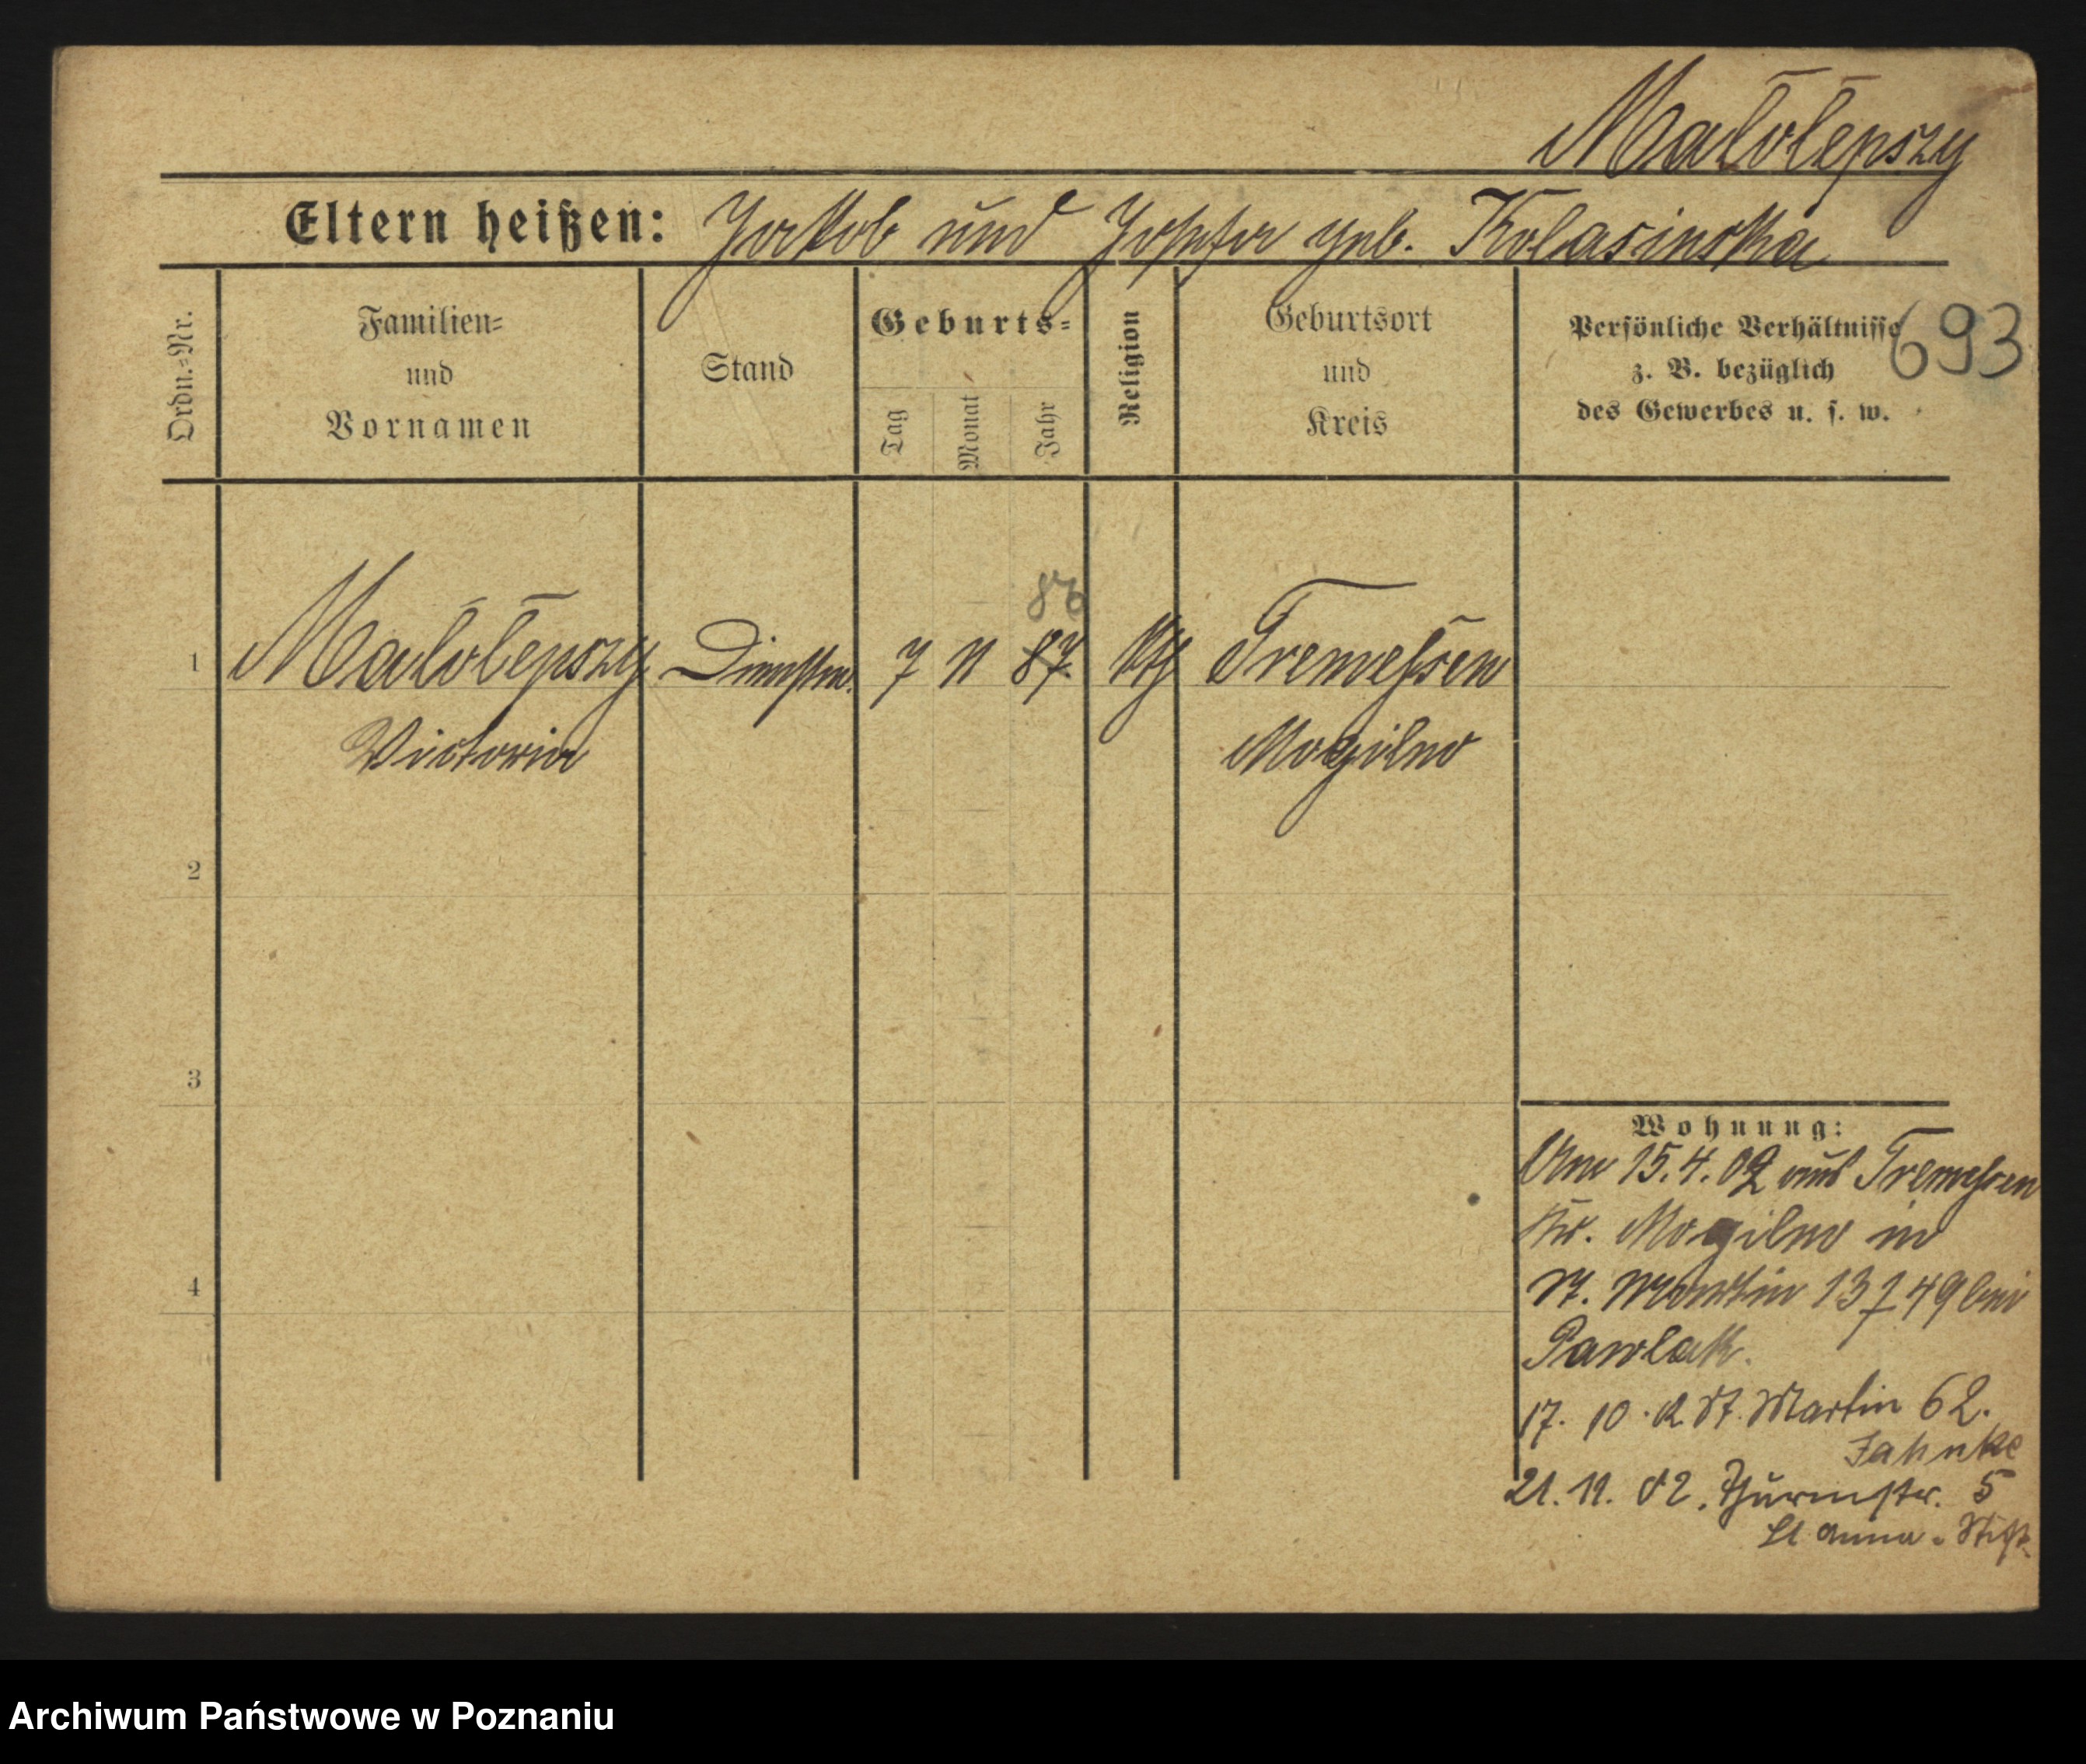 Małolepszy
Eltern heißen: Jakob und Josefa geb. Kolasinska
693
Ordn.=Nr.
Familien=
und
Vornamen
Stand
Geburts=
Tag
Monat
Jahr
Religion
Geburtsort
und
Kreis
Persönliche Verhältnisse
z. B. bezüglich
des Gewerbes u. s. w.
86
1 Małolepszy Dienstm. 7 11 87 kth Tremessen
Victoria Mogilno
2
3
4
Wohnung:
Am 15.4.02 aus Tremessen
Kr. Mogilno in
St. Martin 13 f 49 bei
Pawlak.
17. 10. 02 St. Martin 62.
Jahnke
21. 11. 02. Thurmstr. 5
St Anna - Stift.
Archiwum Państwowe w Poznaniu